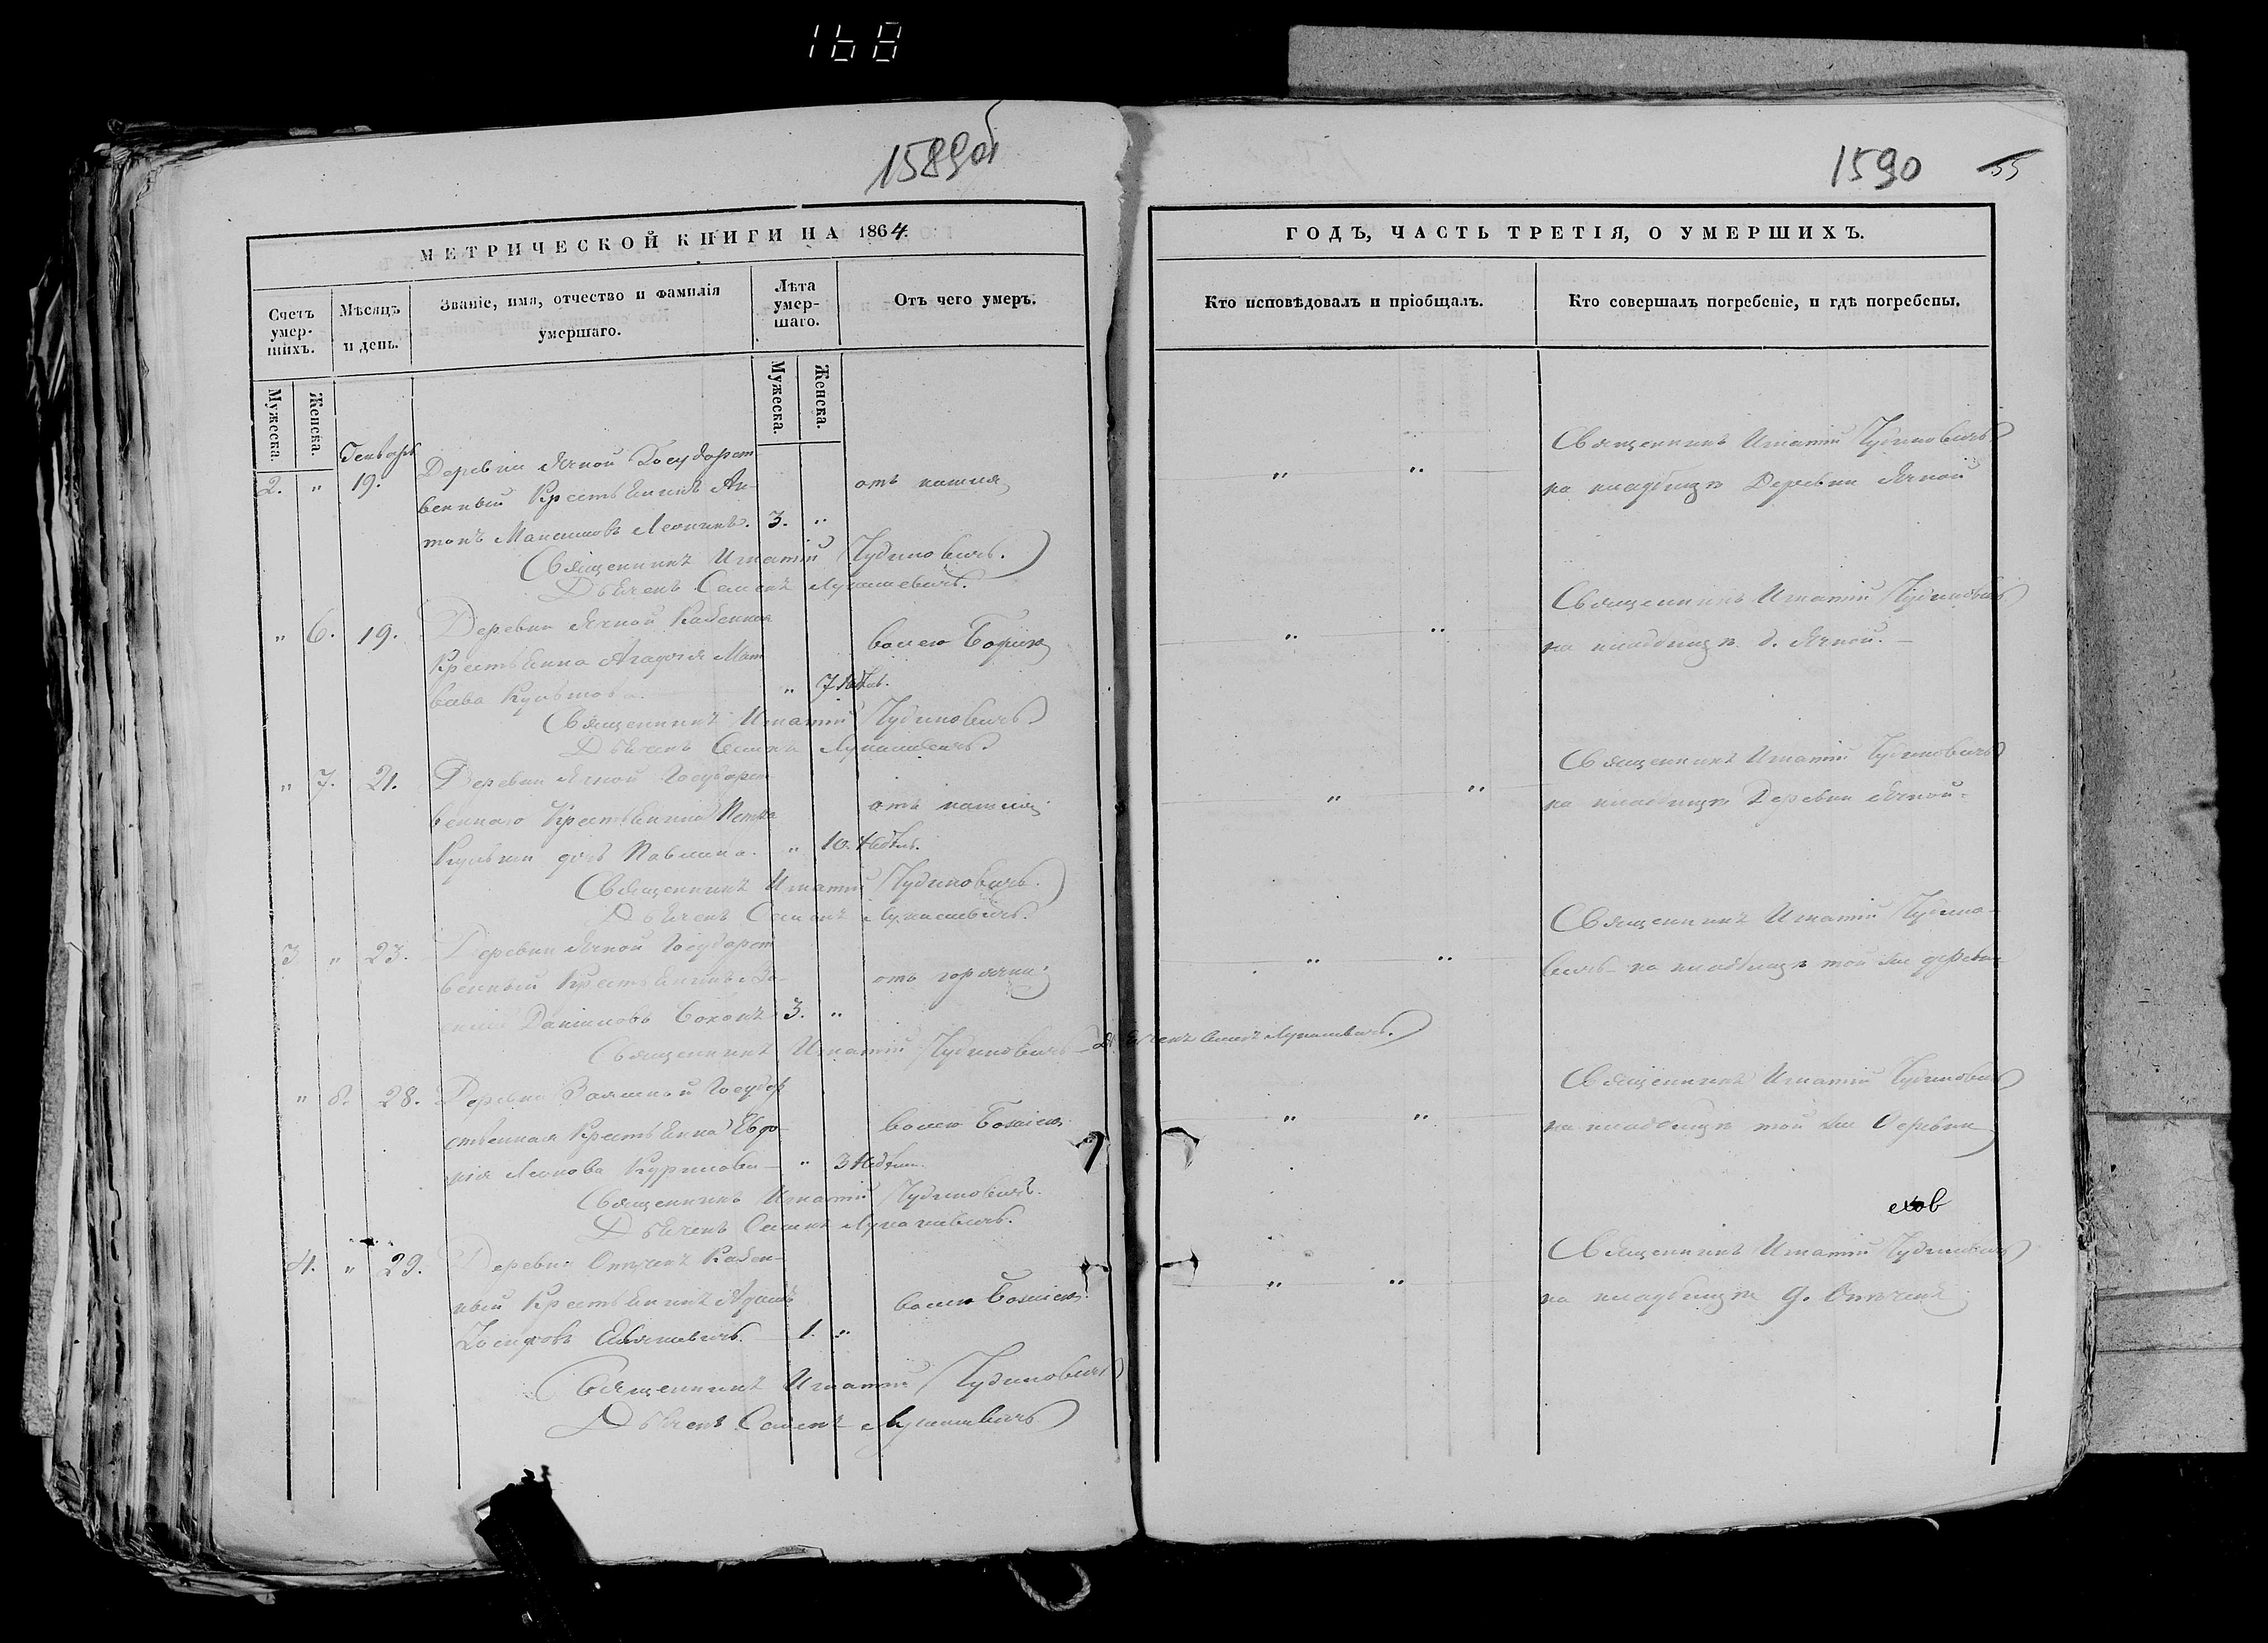 168
1589об
МЕТРИЧЕСКОЙ КНИГИ НА 1864.
Счетъ умер-шихъ.
Мѣсяцъ и день.
Званіе, имя, отчество и фамилія умершаго.
Лѣта умер-шаго.
Отъ чего умеръ.
Мужеска.
Женска.
Мужеска.
Женска.
Генварь
Деревни Ячной Государст
2. " 19.
венный Крестьянинъ Ан-
отъ кашля
тонъ Максимовъ 3. "
Священникъ Игнатій Чудиновичъ.
Дьячекъ Семенъ Лукашевичъ.
" 6. 19. Деревни Ячной Казенная
Крестьянка Агафія Мат
волею Божіею
" 7 Недѣль.
Священникъ Игнатій Чудиновичъ
Дьячекъ Семенъ Лукашевичъ.
" 7. 21. Деревни Ячной Государст-
веннаго Крестьянина Петра
отъ кашля
дочь Павлина. " 10. Недѣль.
Священникъ Игнатій Чудиновичъ.
Дьячекъ Семенъ Лукашевичъ.
3 " 23. Деревни Ячной Государст
венный Крестьянинъ Ва-
отъ горячки
силій Даниловъ 3. "
Священникъ Игнатій Чудиновичъ Дьячекъ Семенъ Лукашевичъ.
" 8. 28. Деревни Государ
ственная Крестьянка Евдо-
волею Божіею
кія " 3 Недѣли.
Священникъ Игнатій Чудиновичъ.
Дьячекъ Семенъ Лукашевичъ.
4. " 29. Деревни Казен-
ный Крестьянинъ Адамъ
волею Божіею
1. "
Священникъ Игнатій Чудиновичъ
Дьячекъ Семенъ Лукашевичъ
1590 55
ГОДЪ, ЧАСТЬ ТРЕТІЯ, О УМЕРШИХЪ.
Кто исповѣдовалъ и пріобщалъ.
Кто совершалъ погребеніе, и гдѣ погребены.
Священникъ Игнатій Чудиновичъ
" " на кладбищѣ Деревни Ячной
Священникъ Игнатій Чудиновичъ
" " на кладбищѣ д. Ячной.
Священникъ Игнатій Чудиновичъ
" " на кладбищѣ Деревни Ячной
Священникъ Игнатій Чудино-
" " вичъ на кладбищѣ той же деревни
Священникъ Игнатій Чудиновичъ
" " на кладбищѣ той же Деревни
Священникъ Игнатій Чудиновичъ
" " на кладбищѣ д.